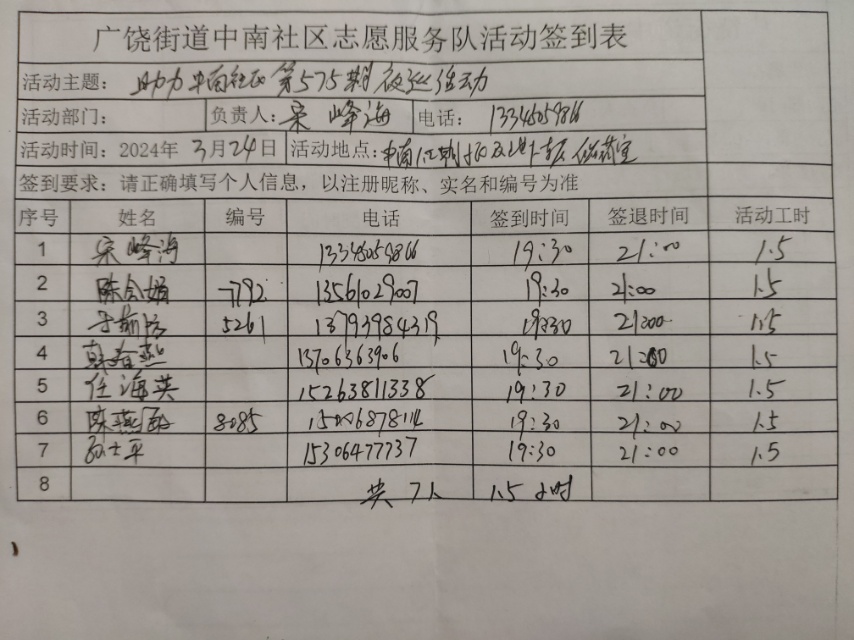 广饶街道中南社区志愿服务队活动签到表
活动主题: 助力中南社区第575期夜巡活动
活动部门: 负责人: 宋峰海 电话: 13345059866
活动时间: 2024年 3月24日 活动地点: 中南
签到要求: 请正确填写个人信息, 以注册昵称、实名和编号为准
序号 姓名 编号 电话 签到时间 签退时间 活动工时
1 宋峰海 13345059866 19:30 21:00 1.5
2 陈会娟 7792 13561029007 19:30 21:00 1.5
3 5261 13793984319 19:30 21:00 1.5
4 韩春燕 13706363906 19:30 21:00 1.5
5 任海英 15263811338 19:30 21:00 1.5
6 陈燕 8085 19:30 21:00 1.5
7 孙士平 15306477737 19:30 21:00 1.5
8 共7人 1.5小时